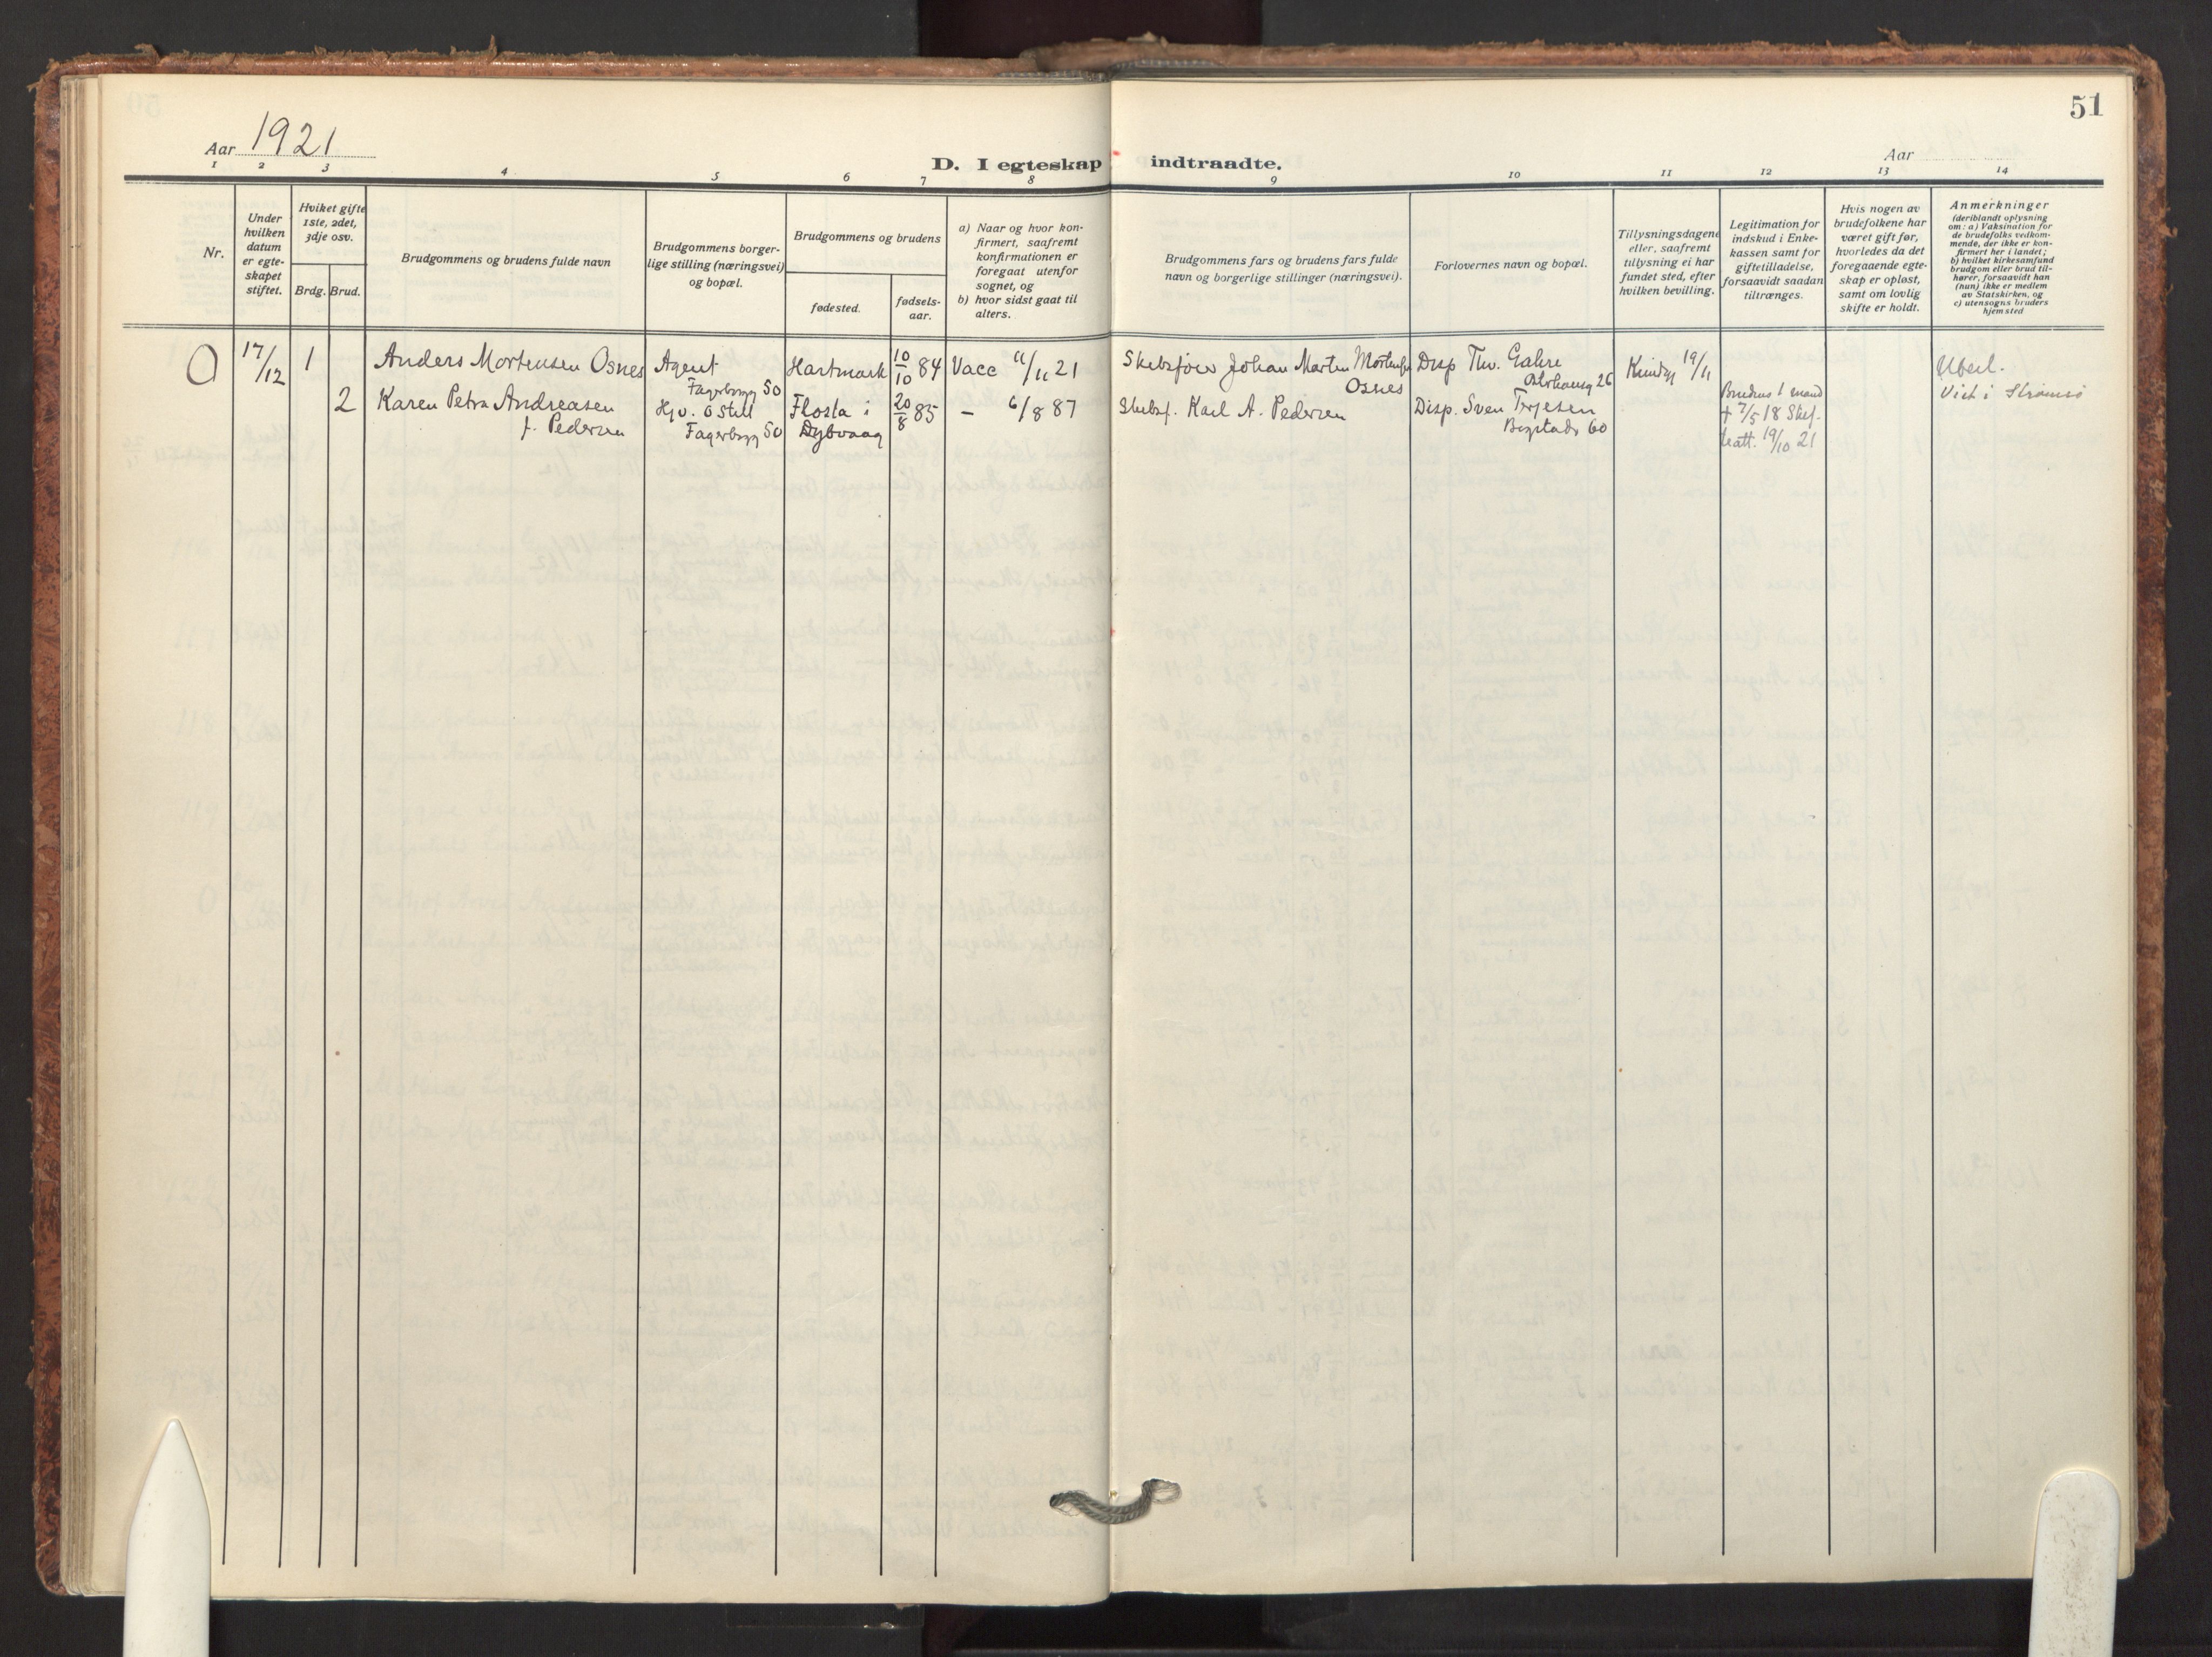 51
Aar 1921
D. I egteskap indtraadte.
Aar
1 2 3 4 5 6 7 8 9 10 11 12 13 14
Nr.
Under
hvilken
datum
er egte-
skapet
stiftet.
Hviket gifte
1ste, 2det,
3dje osv.
Brdg. Brud.
Brudgommens og brudens fulde navn
Brudgommens borger-
lige stilling (næringsvei)
og bopæl.
Brudgommens og brudens
fødested.
fødsels-
aar.
a) Naar og hvor kon-
firmert, saafremt
konfirmationen er
foregaat utenfor
sognet, og
b) hvor sidst gaat til
alters.
Brudgommens fars og brudens fars fulde
navn og borgerlige stillinger (næringsvei).
Forlovernes navn og bopæl.
Tillysningsdagene
eller, saafremt
tillysning ei har
fundet sted, efter
hvilken bevilling.
Legitimation for
indskud i Enke-
kassen samt for
giftetilladelse,
forsaavidt saadan
tiltrænges.
Hvis nogen av
brudefolkene har
været gift før,
hvorledes da det
foregaaende egte-
skap er opløst,
samt om lovlig
skifte er holdt.
Anmerkninger
(deriblandt oplysning
om: a) Vaksination for
de brudefolks vedkom-
mende, der ikke er kon-
firmert her i landet;
b) hvilket kirkesamfund
brudgom eller brud til-
hører, forsaavidt han
(hun) ikke er medlem
av Statskirken, og
c) utensogns bruders
hjemsted
0 17/12 1 Anders Mortensen Osnes Agent Hartmark 10/10 84 Vacc 11/11 21 Skibsfører Johan Martin Mortensen Disp Thv. 19/11
Fagerborgg 50 Osnes 26
2 Karen Petra Andreasen Hjv. o stell Flosta i 20/8 85 – 6/8 87 Skibsf. Karl A. Pedersen Disp. Sven Terjesen Brudens 1 mand Viet i Strømsø
f. Pedersen Fagerborgg 50 Dybvaag Bogstadv 60 + 7/5 18 Skif-
teatt. 19/10 21